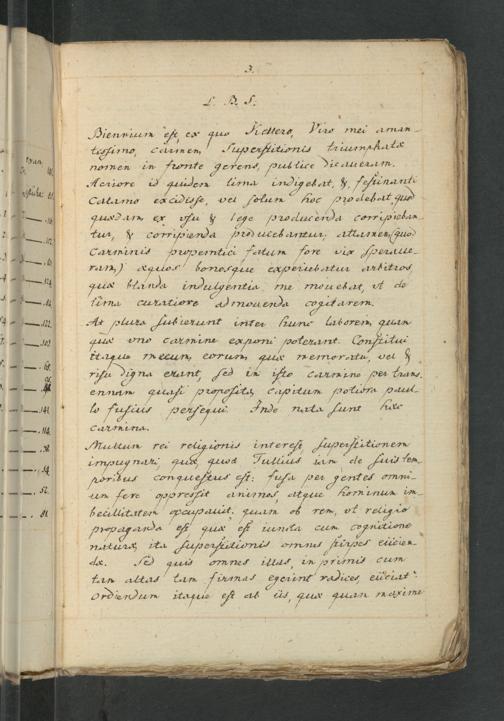 3.
L. B. S.
Biennium est, ex quo Viro mei aman-
tissimo, carmen, Superstitionis triumphatæ
nomen in fronte gerens, publice dicaveram.
Acriore id quidem lima indigebat, &, festinanti
calamo excidisse, vel solum hoc prodebat, quod
quædam ex usu & lege producenda corripieban-
tur, & corripienda producebantur; attamen (quod
Carminis propemtici fatum fore vix sperave-
ram,) æquos bonosque experiebatur arbitros,
quæ blanda indulgentia me movebat, ut de
lima curatiore admovenda cogitarem.
At plura subierunt inter hunc laborem, quam
quæ uno carmine exponi poterant. Constitui
itaque mecum, eorum, quæ memoratu, vel &
risu digna erant, sed in isto carmine per trans-
ennam quasi proposita, capitum potiora paul-
lo fusius persequi. Inde nata sunt hæc
carmina.
Multum rei religionis interest, superstitionem
impugnari, quæ, quod Tullius iam de suis tem-
poribus conquestus est: fusa per gentes omni-
um fere oppressit animos, atque hominum im-
becillitatem occupavit. quam ob rem, ut religio
propaganda est quæ est iuncta cum cognitione
naturæ, ita superstitionis omnes stirpes eiicien-
dæ. Sed quis omnes illas, in primis cum
tam altas tam firmas egerint radices, eiiciat?
Ordiendum itaque est ab iis, quæ quam maxime